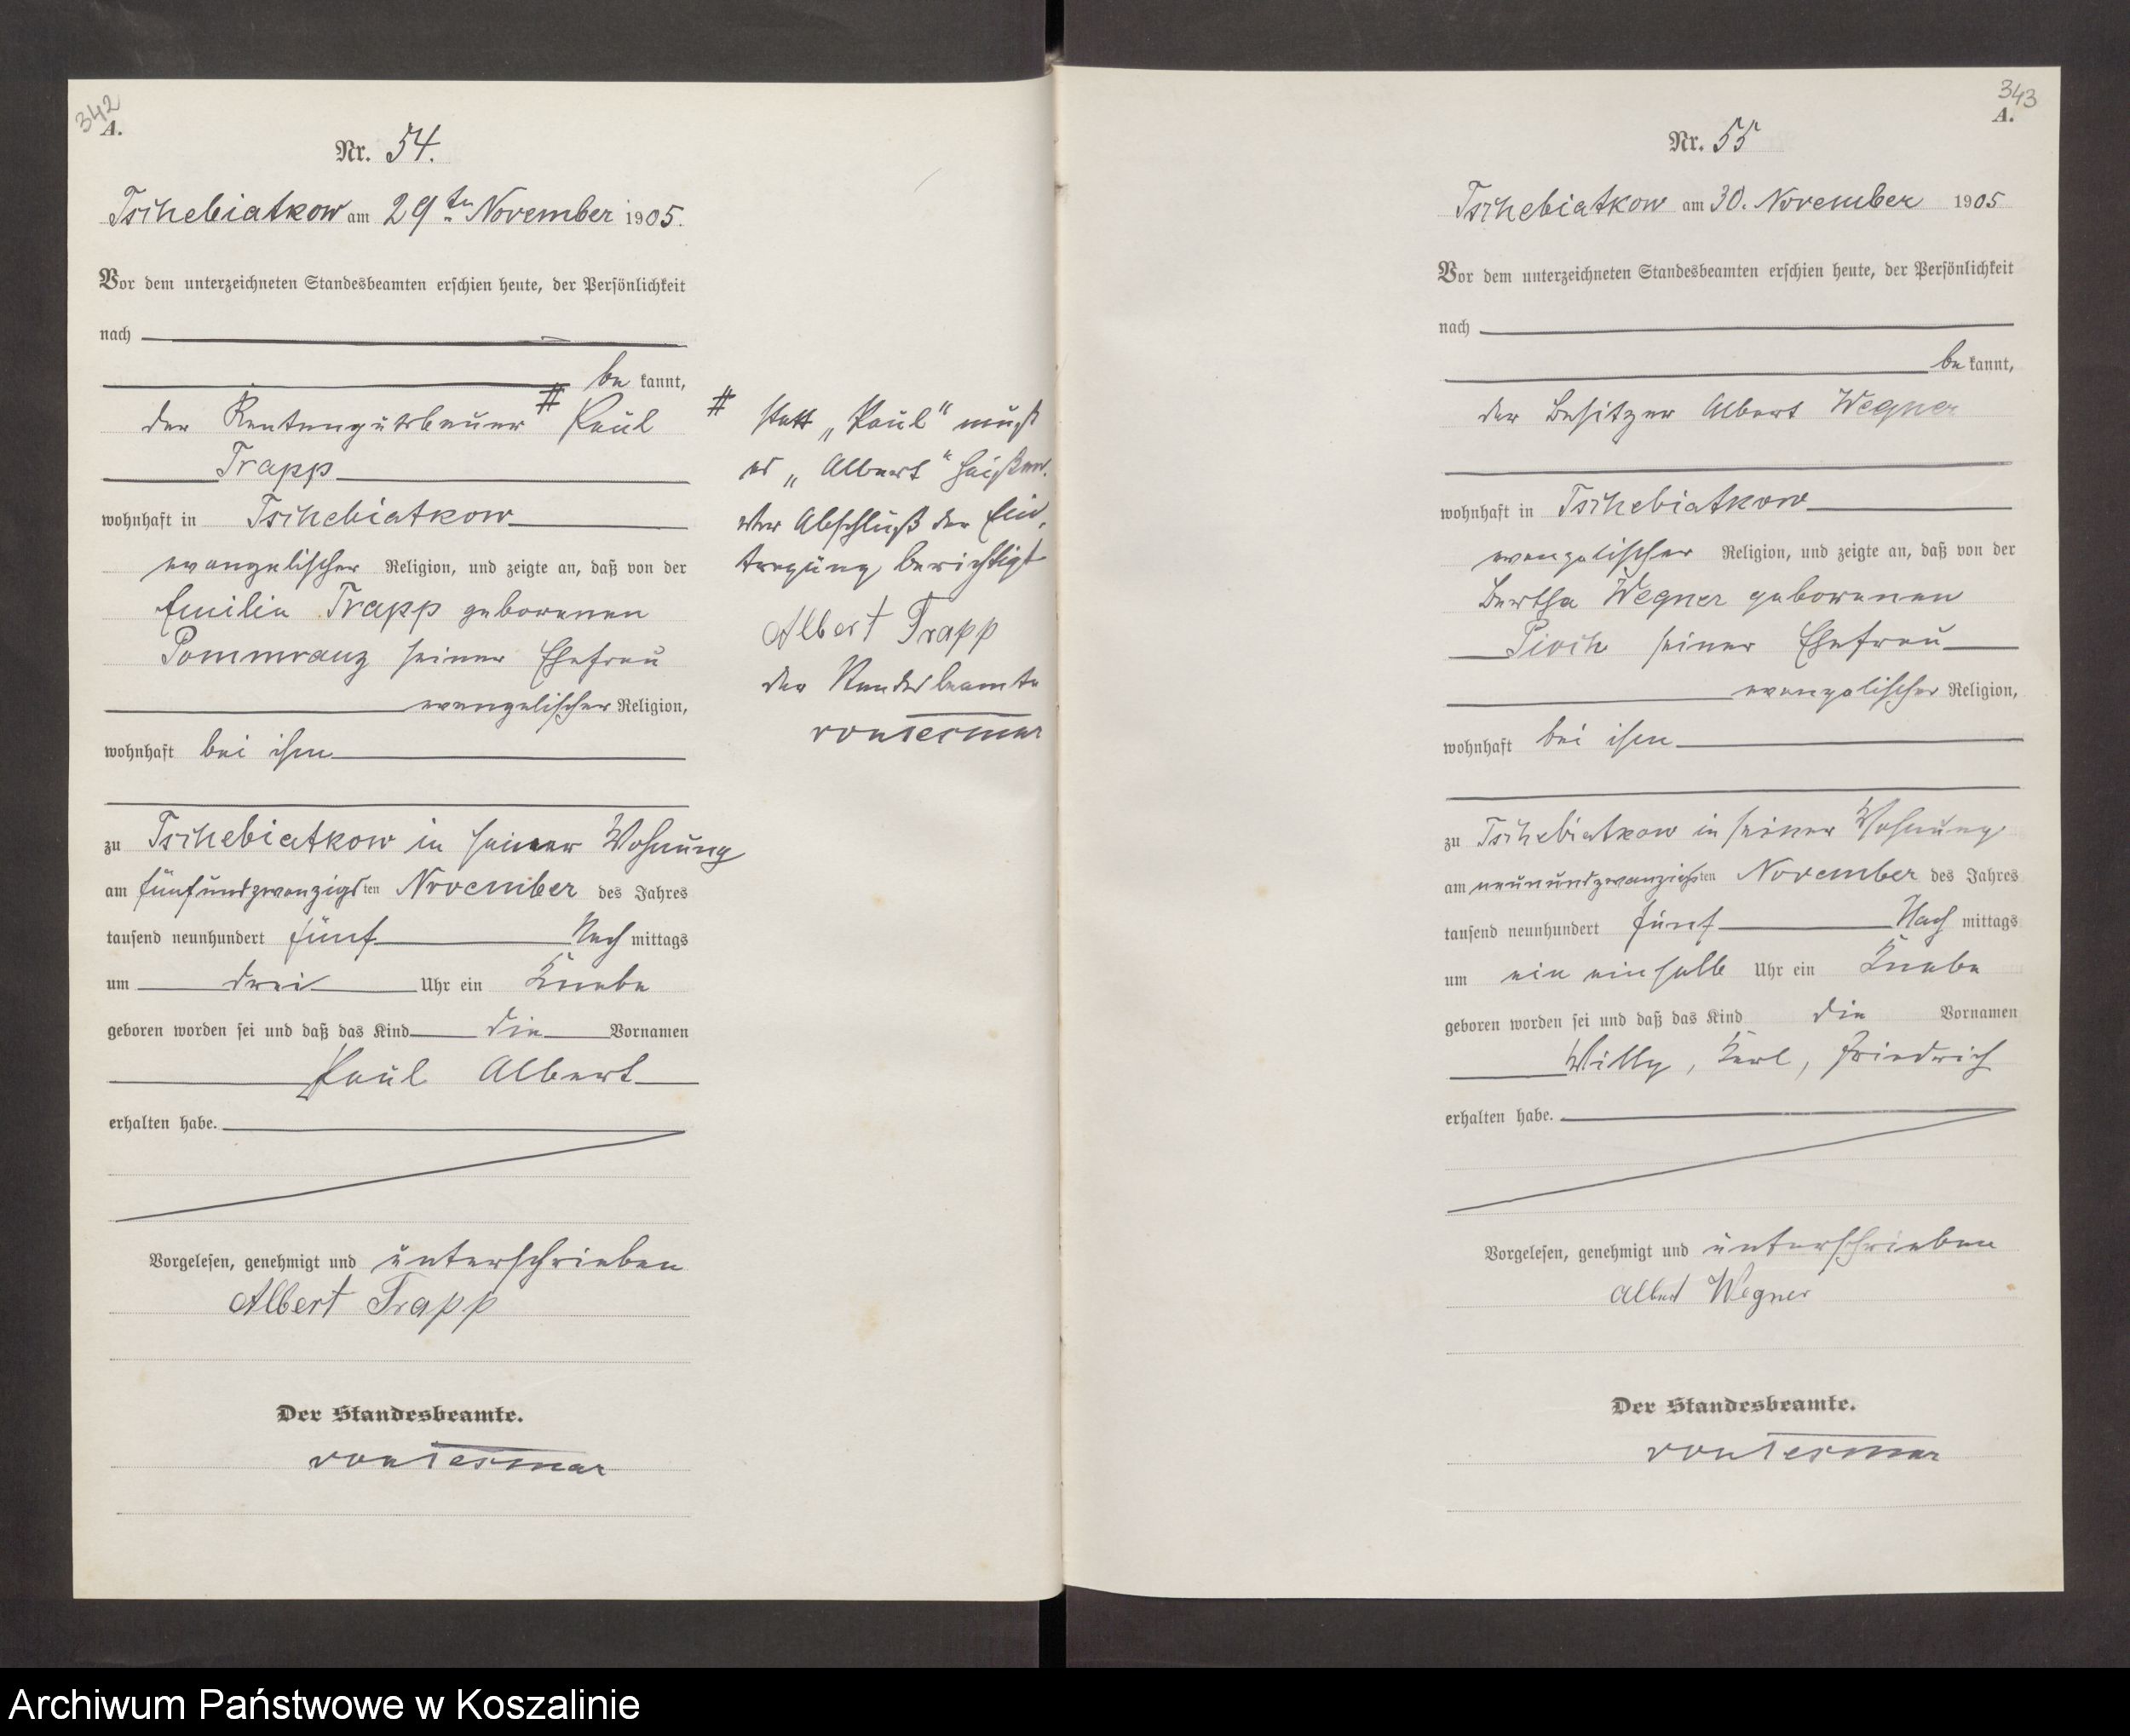 342
A.
Nr. 54.
Tschebiatkow am 29ten November 1905.
Vor dem unterzeichneten Standesbeamten erschien heute, der Persönlichkeit
nach
be kannt,
der Rentengutsbauer # Paul
Trapp
wohnhaft in Tschebiatkow
evangelischer Religion, und zeigte an, daß von der
Emilie Trapp geborenen
Pommranz seiner Ehefrau
evangelischer Religion,
wohnhaft bei ihm
zu Tschebiatkow in seiner Wohnung
am fünfundzwanzigsten November des Jahres
tausend neunhundert fünf Nach mittags
um drei Uhr ein Knabe
geboren worden sei und daß das Kind die Vornamen
Paul Albert
erhalten habe.
Vorgelesen, genehmigt und unterschrieben
Albert Trapp
Der Standesbeamte.
von Tesmar
# statt „Paul" muß
es „Albert" heißen.
vor Abschluß der Ein
tragung berichtigt
Albert Trapp
der Standesbeamte
von Tesmar
343
A.
Nr. 55
Tschebiatkow am 30. November 1905
Vor dem unterzeichneten Standesbeamten erschien heute, der Persönlichkeit
nach
be kannt,
der Besitzer Albert Wegner
wohnhaft in Tschebiatkow
evangelischer Religion, und zeigte an, daß von der
Bertha Wegner geborenen
Pioch seiner Ehefrau
evangelischer Religion,
wohnhaft bei ihm
zu Tschebiatkow in seiner Wohnung
am neunundzwanzigsten November des Jahres
tausend neunhundert fünf Nach mittags
um ein einhalb Uhr ein Knabe
geboren worden sei und daß das Kind die Vornamen
Willy, Karl, Friedrich
erhalten habe.
Vorgelesen, genehmigt und unterschrieben
Albert Wegner
Der Standesbeamte.
von Tesmar
Archiwum Państwowe w Koszalinie